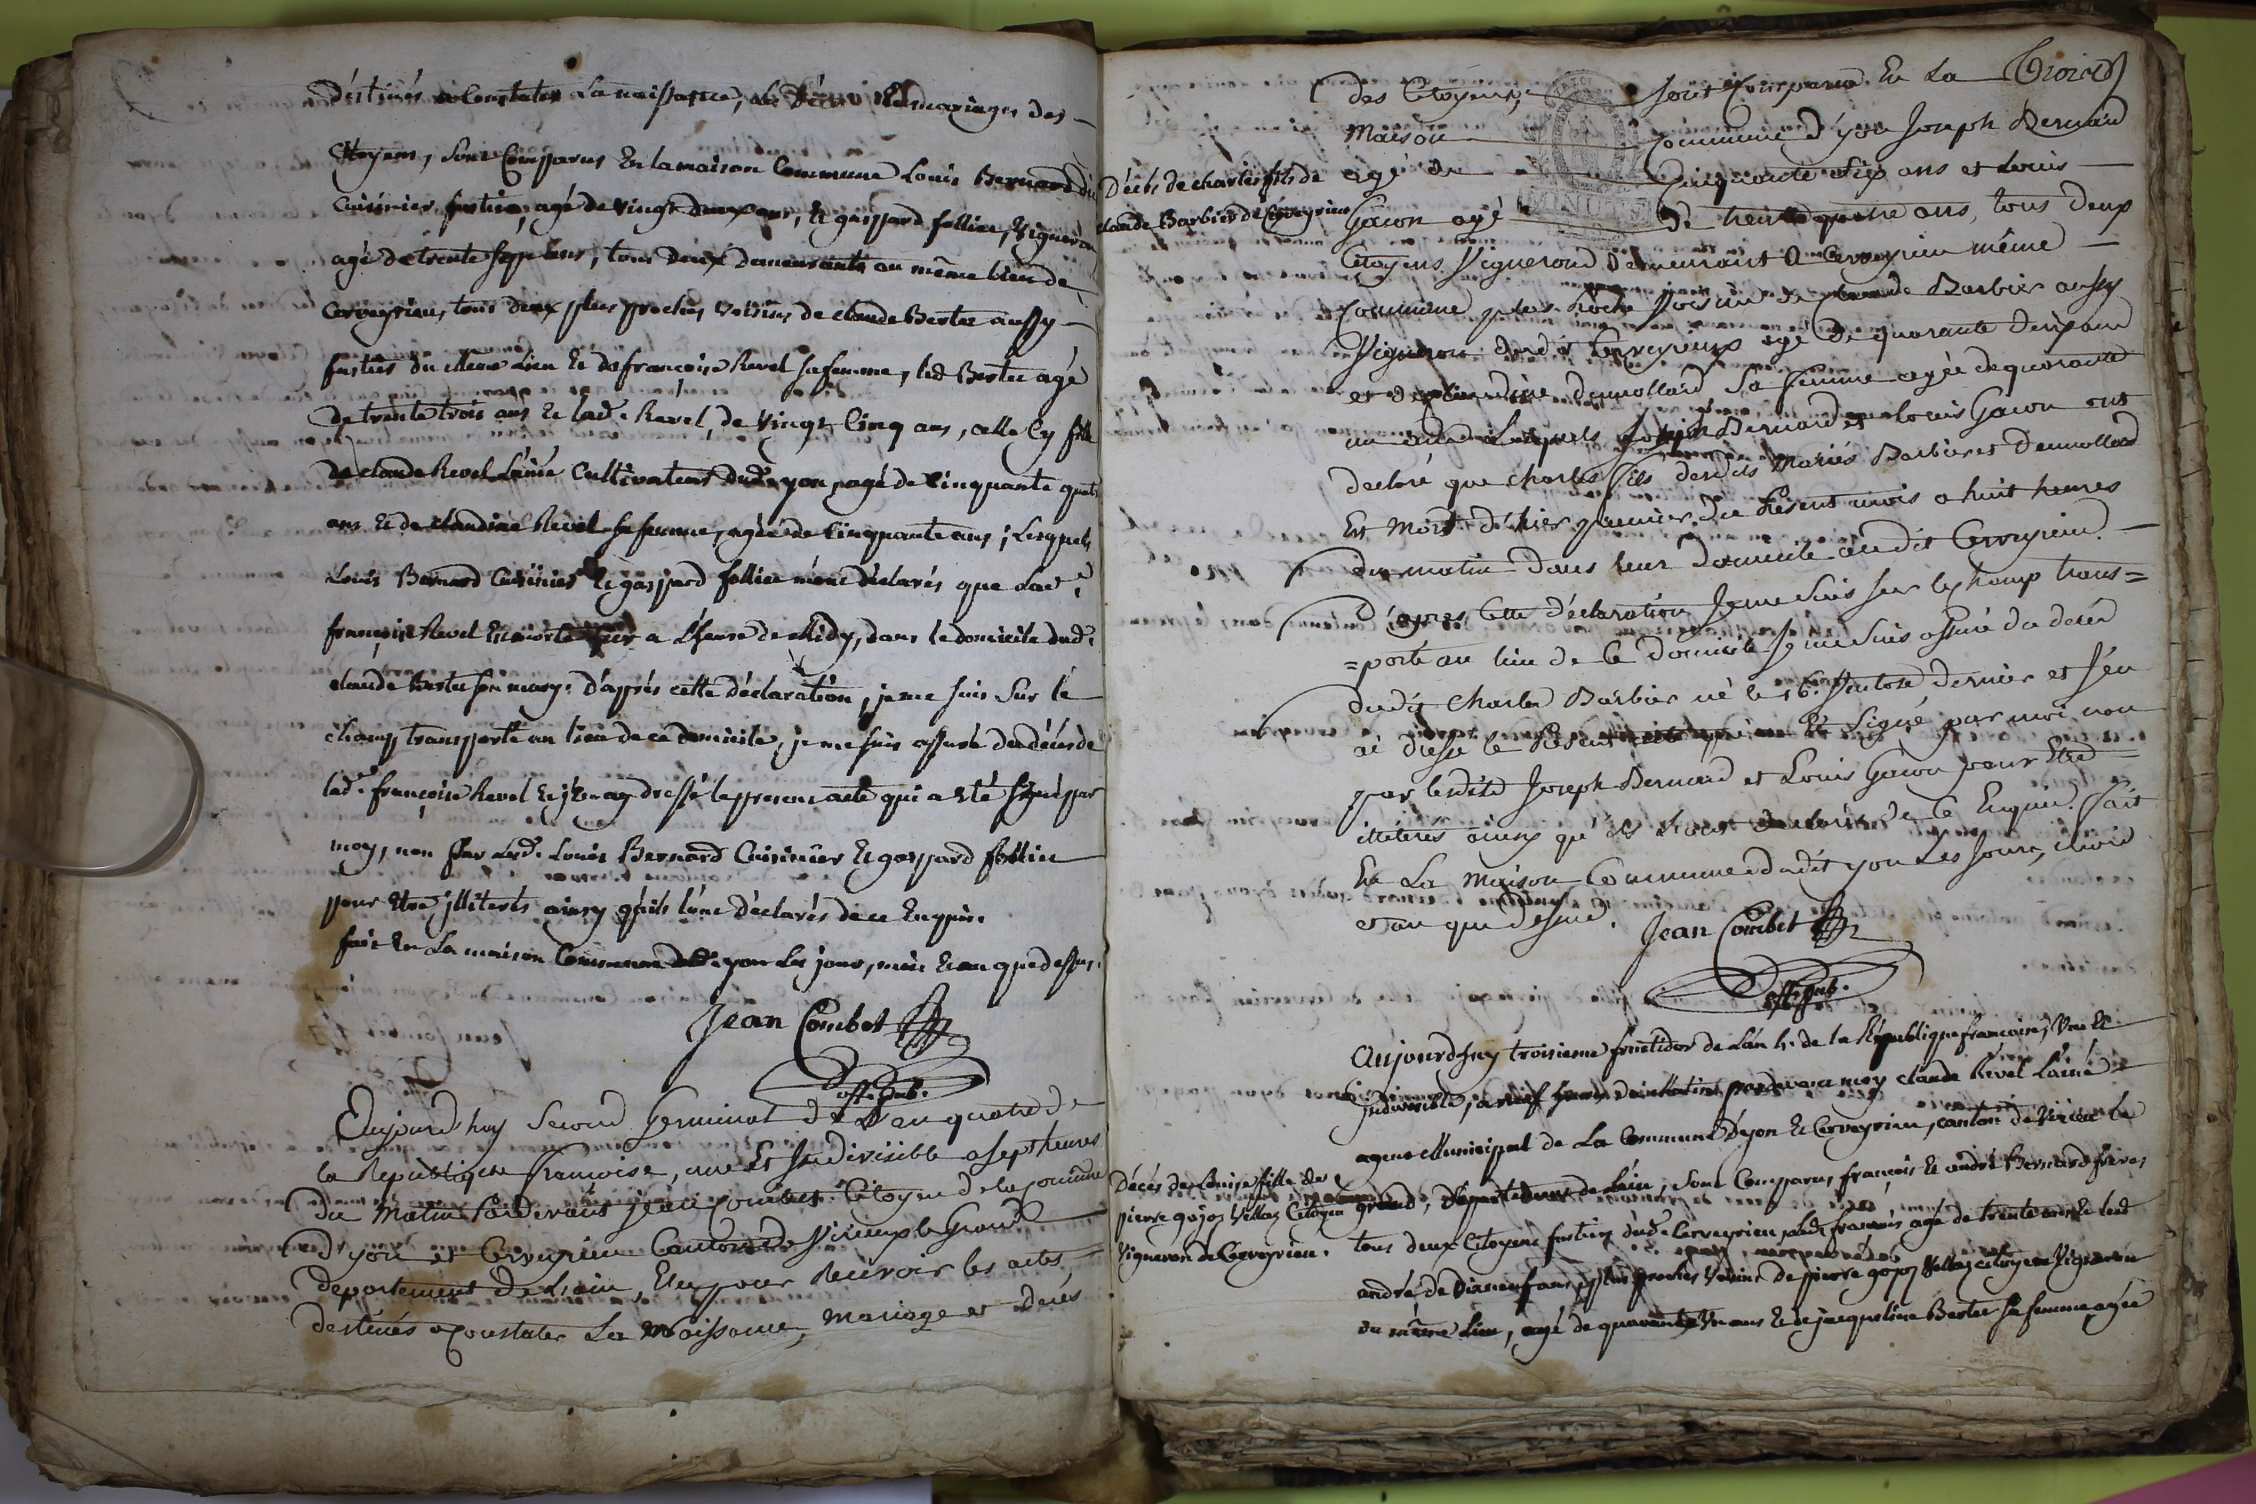 Déstinés a Constater La naissance, le Décès Et mariages des
Citoyens, Sont Comparus En la maison Commune Louis Bernard dit
Cuisinier fustier, agé de vingt deux ans, Et gaspard follier, vigneron
agé de trente sept ans, tous Deux demeurants au même lieu de
Cerveyrieu, tous deux plus proches voisins de claude Berter aussy
fustier du même Lieu Et de françoise Revel sa femme, led Berter agé
de trente trois ans Et lad. Revel, de vingt Cinq ans, celle Cy fille
de claude Revel L'ainé Cultivateur dud. yon, agé de Cinquante quatre
ans Et de claudine Revel sa femme, agéé de Cinquante ans; Lesquels
Louis Bernard Cuisinier Et gaspard follier m'ont déclarés que lad.
françoise Revel Est morte hier a L'heure de Midy, dans le domicile dud.
claude Berter son mary. D'après cette déclaration, je me suis Sur le
champ transporté au lieu de ce domicile, je me suis assuré du décès de
lad. françoise Revel Et j'En ay dressé le present acte qui a Eté signé par
moy, non par Led. Louis Bernard Cuisinier Et gaspard follier
pour Etre illiterés ainsy qu'ils l'ont déclarés de ce Enquis.
fait En La maison Commune dud. yon Les jour, mois Et an que dessus.
Jean Combet
off. pub.
Aujourd'huy Second Germinal de L'an quatre de
la République francoise, une Et Indivisible a sept heures
du Matin Pardevant Jean Combet Citoyen de la Commune
D'yon et Cerveyrieu Canton de Virieux le Grand
departement De L'ain, Elu pour Recevoir les actes
destinés a Constater La Naissance, Mariage et décés
des Citoyens, Sont Comparus En La
Maison Commune d'yon Joseph Bernard
agé de Cinquante Six ans et Louis
Gacon agé de trente quatre ans, tous deux
Citoyens Vigneron Demeurant a Cerveyrieu même
Commune plus Proche Voisin de Claude Barbier aussy
Vigneron dudit Cerveyrieux agé De quarante deux ans
et Dumollard Sa femme agée de quarante
un ans Lesquels Joseph Bernard et Louis Gacon ont
declaré que Charles fils desdits Mariés Barbier et Dumollard
Est Mort d'hier premier du Présent mois a huit heures
du matin dans leur Domicile audit Cerveyrieu.
D'apres Cette déclaration Je me Suis Sur le Champ trans=
=porté au lieu de Ce Domicile Je me Suis assuré du décés
dudit Charles Barbier né le 16 Ventose dernier et J'en
ai dressé le Présent Et Signé par moi non
par lesdits Joseph Bernard et Louis Gacon pour Etre
illéterés ainsy qu'ils de Ce Enquis. Fait
En La Maison Commune dudit yon Les Jour, mois
et an que dessus.
Jean Combet
off. pub.
Décès de charles fils de
claude Barbier de Cerveyrieu
Aujourdhuy troisieme fructidor de L'an 4. de la République francaise, Une Et
Indivisible, a neuf heures du Matin pardevant moy claude Revel L'ainé
agent Municipal de La Commune D'yon Et Cerveyrieu, canton de Virieu le
grand, Département de L'ain, Sont Comparus françois Et andré Bernard frères
tous deux Citoyens fustiers dud. Cerveyrieu, led. françois agé de trente ans Et led
andré, de Dixneuf ans, plus proches Voisins de pierre gojoz Vellaz citoyen Vigneron
du même Lieu, agé de quarante Un ans Et de jacqueline Berter sa femme, agée
Décès de Louise fille de
pierre gojoz Vellaz Citoyen
Vigneron de Cerveyrieu.